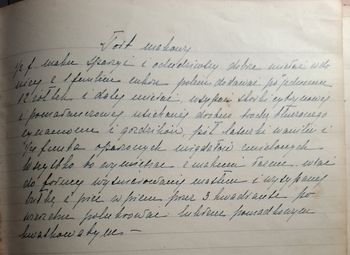 Tort makowy
1/2 f maku sparzyć i ochłodziwszy dobrze ucierać w do
nicy z 1 funtem cukru potem dodawać po jednemu
12 żółtek i dalej ucierać, wsypać skórki cytrynowej
z pomarańczowej usiekanej drobno trochę tłuczonego
cynamonu i goździków, pół laseki wanilii i
1/4 funta oparzonych migdałów mielonych
wszystko to wymieszać i nakoniec wlać
do formy wysmarowanej masłem i wysypanej
bułką i piec w piecu przez 3 kwadranse po
upieczeniu polukrować lukrem pomadkowym
kwaskowatym —